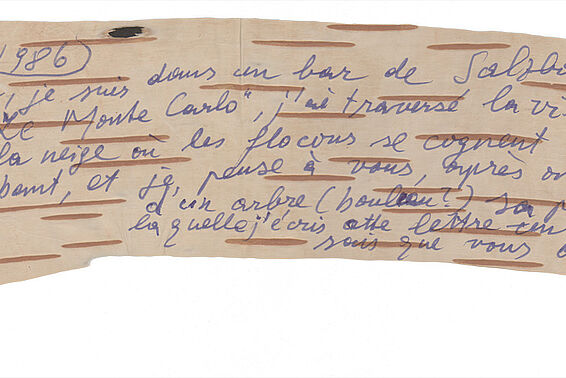 1986
, je suis dans un bar de Salzbu
Le Monte Carlo", j'ai traversé la vi
la neige où les flocons se cognent
bant, et je, pense à vous, après
à un arbre (bouleau?) sa
laquelle j'écris cette lettre
sais que vous